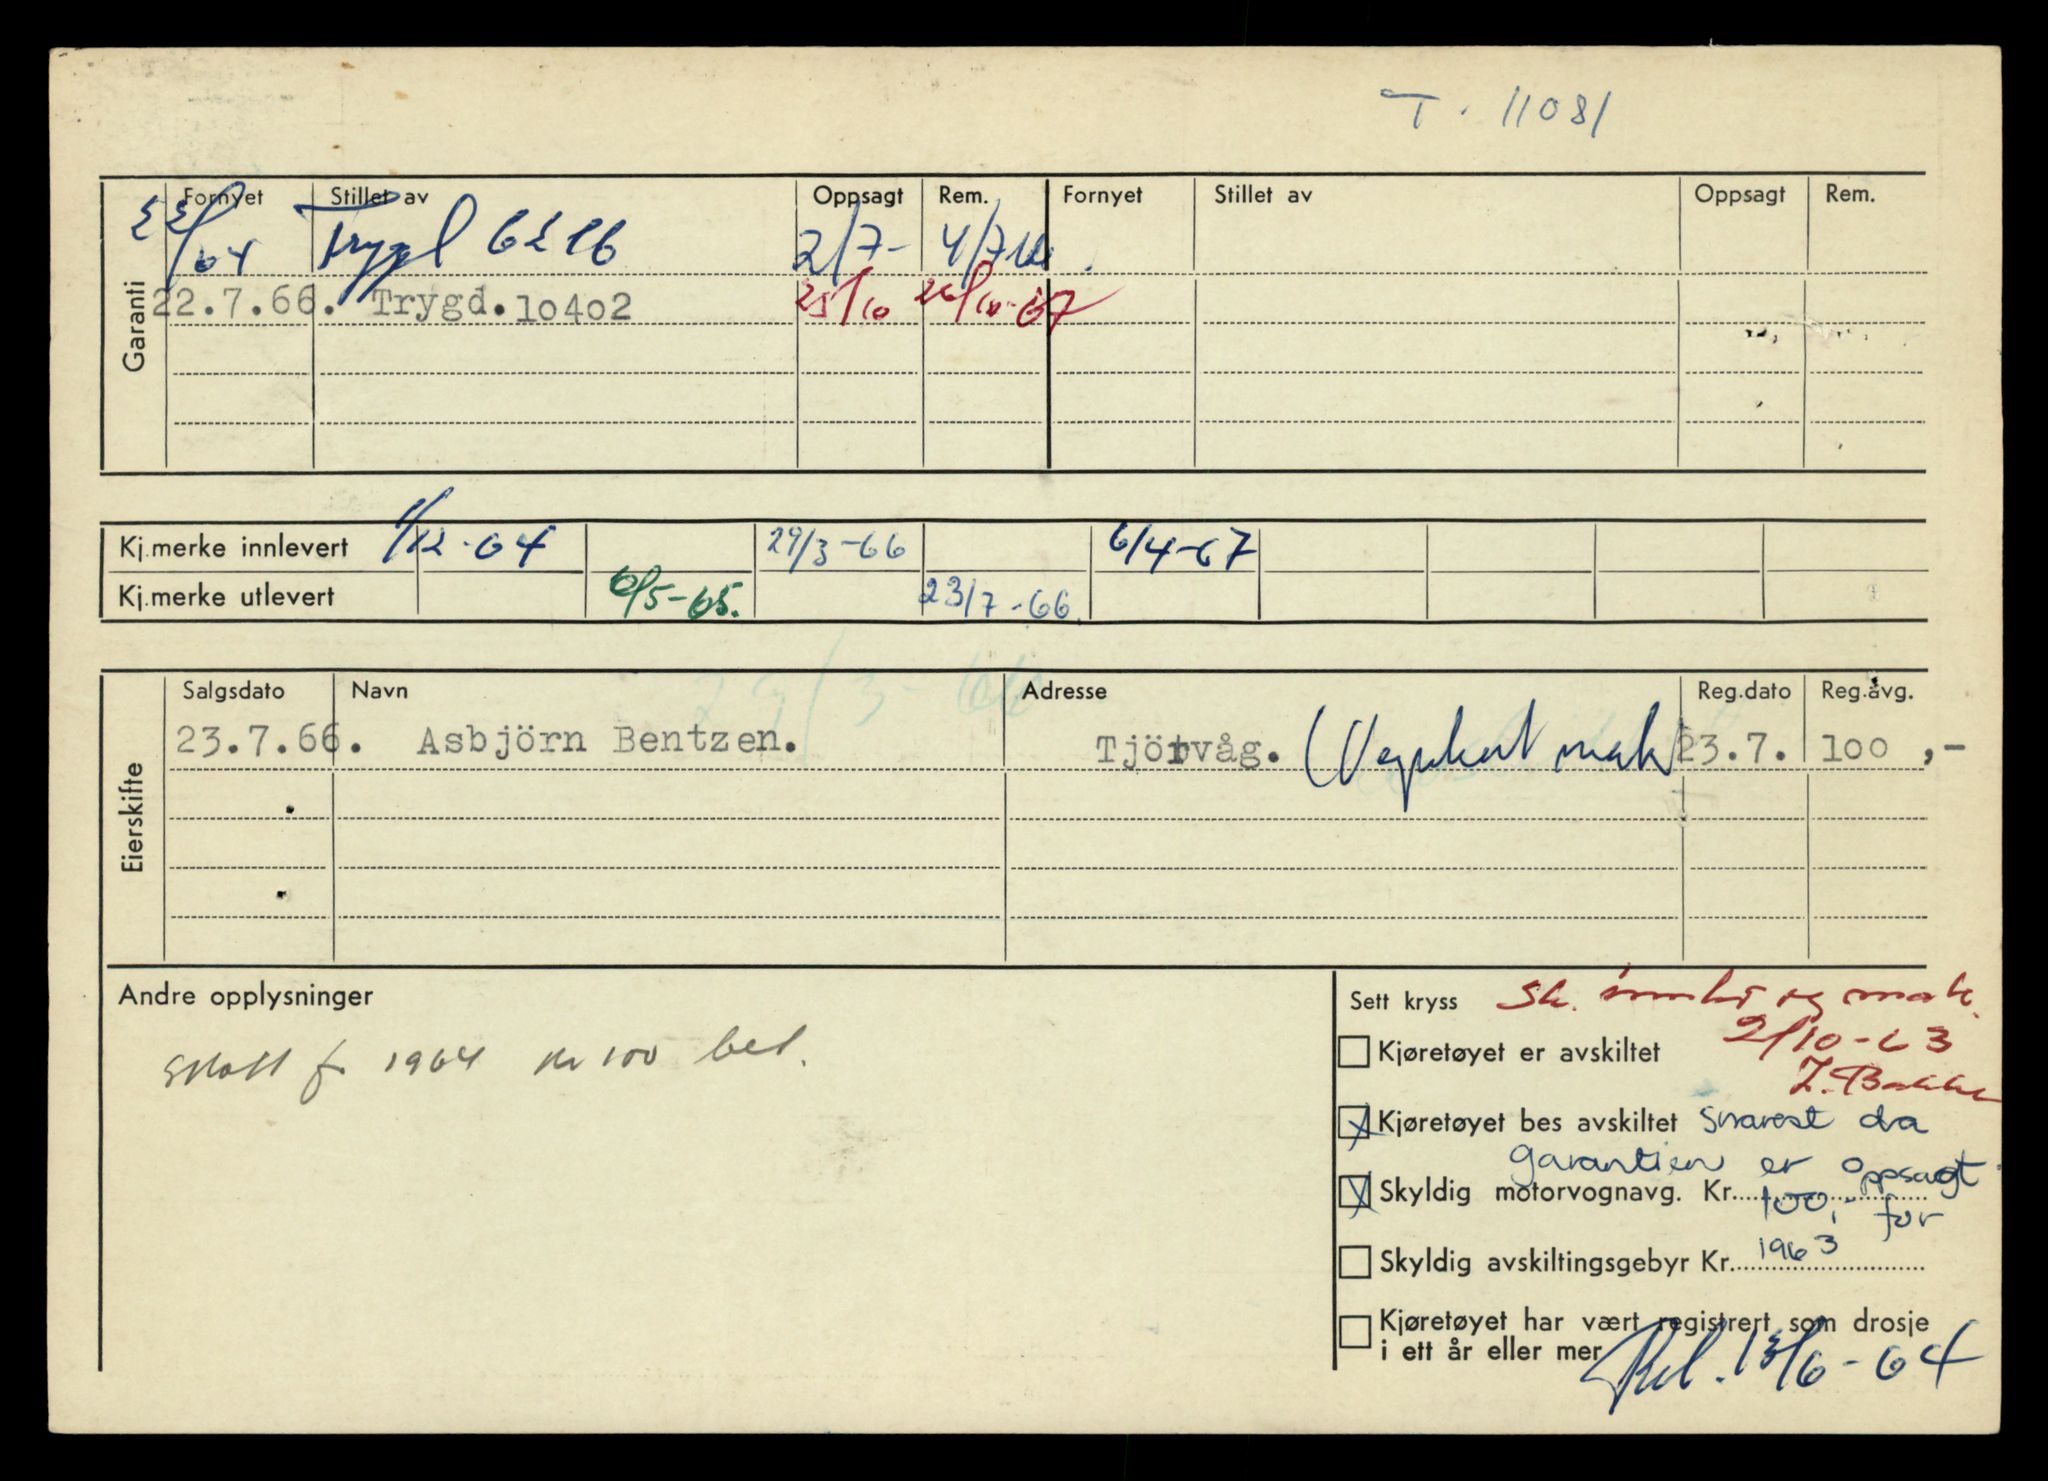 T. 11081
Garanti
Fornyet Stillet av Oppsagt Rem. Fornyet Stillet av Oppsagt Rem.
/64 2/7- 4/7
22.7.66. Trygd. 10402 25/10 26/10-67
Kj.merke innlevert 1/12-64 29/3-66 6/4-67
Kj.merke utlevert 6/5-65. 23/7-66.
29/3-66
Eierskifte
Salgsdato Navn Adresse Reg.dato Reg.avg.
23.7.66. Asbjörn Bentzen. Tjörvåg. (Vognkort mak 23.7. 100,-
Andre opplysninger
Skatt f. 1964 kr 100 bet.
Sett kryss Sk. og mak.
2/10-63
Kjøretøyet er avskiltet
Z. Bakke
Kjøretøyet bes avskiltet snarest da
garantien er oppsagt
Skyldig motorvognavg. Kr. 100,- for
1963
Skyldig avskiltingsgebyr Kr.
Kjøretøyet har vært registrert som drosje
i ett år eller mer
13/6-64